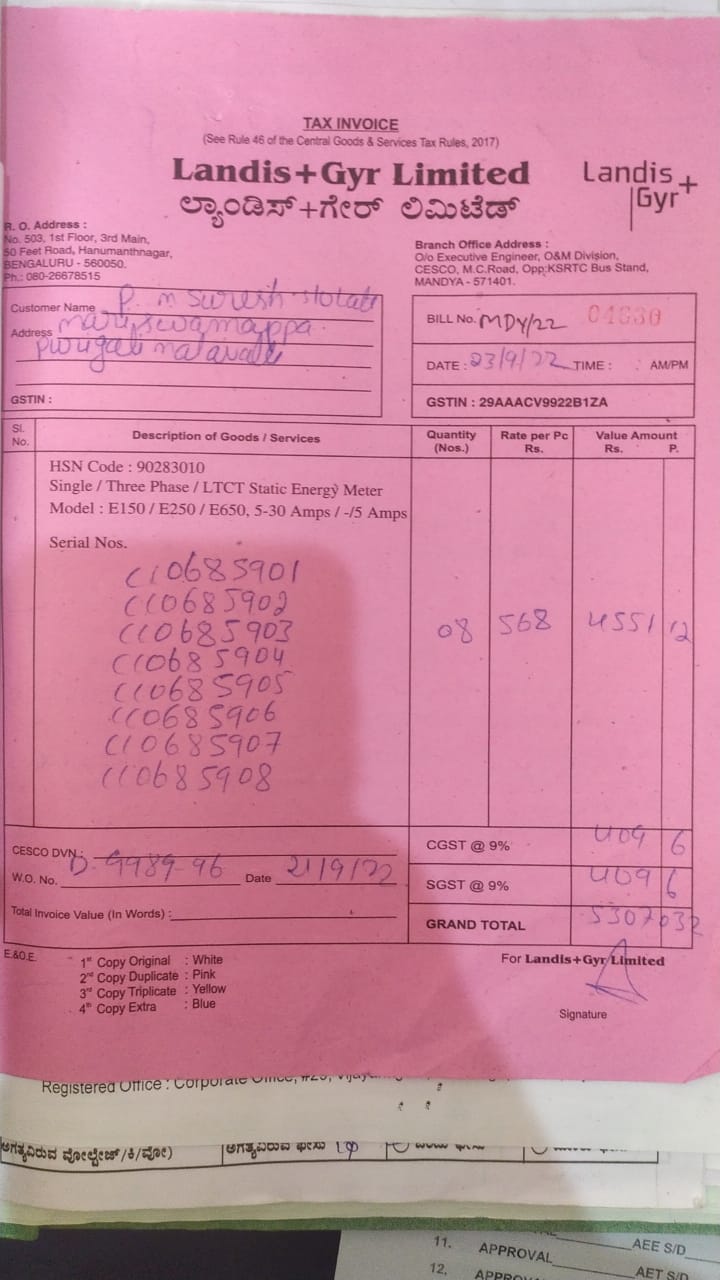 TAX INVOICE
(See Rule 46 of the Central Goods & Services Tax Rules, 2017)
Landis+Gyr Limited
ಲ್ಯಾಂಡಿಸ್+ಗೇರ್ ಲಿಮಿಟೆಡ್
Landis+
Gyr
R. O. Address :
No. 503, 1st Floor, 3rd Main,
50 Feet Road, Hanumanthnagar,
BENGALURU - 560050.
Ph.: 080-26678515
Branch Office Address :
O/o Executive Engineer, O&M Division,
CESCO, M.C.Road, Opp:KSRTC Bus Stand,
MANDYA - 571401.
Customer Name P. m Suresh
Address
GSTIN :
BILL No. MDY/22
DATE : 23/9/22 TIME : AM/PM
GSTIN : 29AAACV9922B1ZA
Sl. No. Description of Goods / Services Quantity (Nos.) Rate per Pc Rs. Value Amount Rs. P.
HSN Code : 90283010
Single / Three Phase / LTCT Static Energy Meter
Model : E150 / E250 / E650, 5-30 Amps / -/5 Amps
Serial Nos.
C10685901
C10685902
C10685903 08 568 4551 12
C10685904
C10685905
C10685906
C10685907
C10685908
CGST @ 9% 409 6
SGST @ 9% 409 6
GRAND TOTAL
CESCO DVN :
W.O. No. D-9989-96 Date 21/9/22
Total Invoice Value (In Words) :
E.&O.E.
1st Copy Original : White
2nd Copy Duplicate : Pink
3rd Copy Triplicate : Yellow
4th Copy Extra : Blue
For Landis+Gyr Limited
Signature
Registered Office : Corporate
ಅಗತ್ಯವಿರುವ ವೋಲ್ಟೇಜ್/ಕಿ/ವೋ) ಅಗತ್ಯವಿರುವ
11. APPROVAL AEE S/D
12. AET S/D